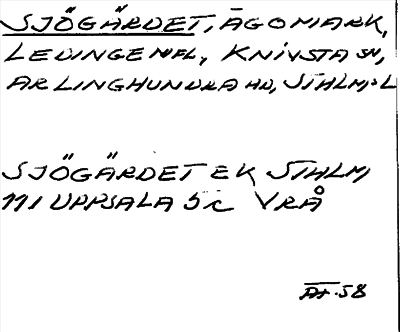 SJÖGÄRDET, ÄGOMARK,
LEDINGE NPL, KNIVSTA SN,
ARLINGHUNDRA HD, STHLMS L
SJÖGÄRDET EK STHLM
111 UPPSALA 5 C VRÅ
.58